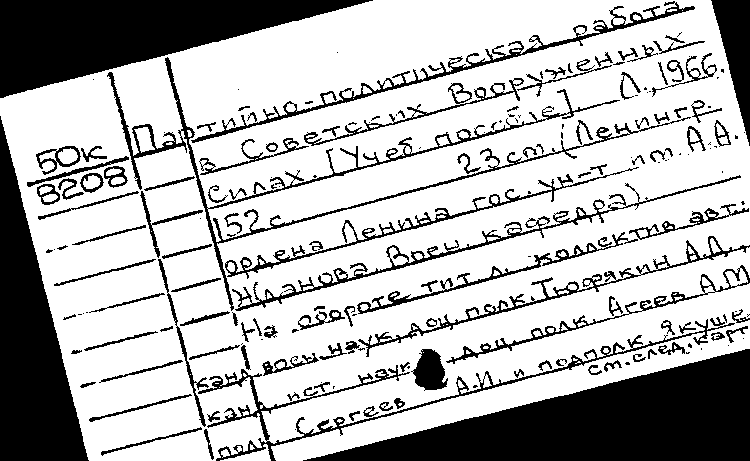 50К
8208
Партийно-политическая работа
в Советских Вооруженных
Силах. [Учеб. пособие]. Л., 1966.
152 с. 23 см. (Ленингр.
ордена Ленина гос. ун-т им. А.А.
Жданова. Воен. кафедра).
На обороте тит. л. коллектив авт.:
канд. воен. наук, доц. полк. Тюфякин А.Д.,
канд. ист. наук, доц. полк. Агеев А.М.
полк. Сергеев А.И. и подполк. Якуше
см. след. карт